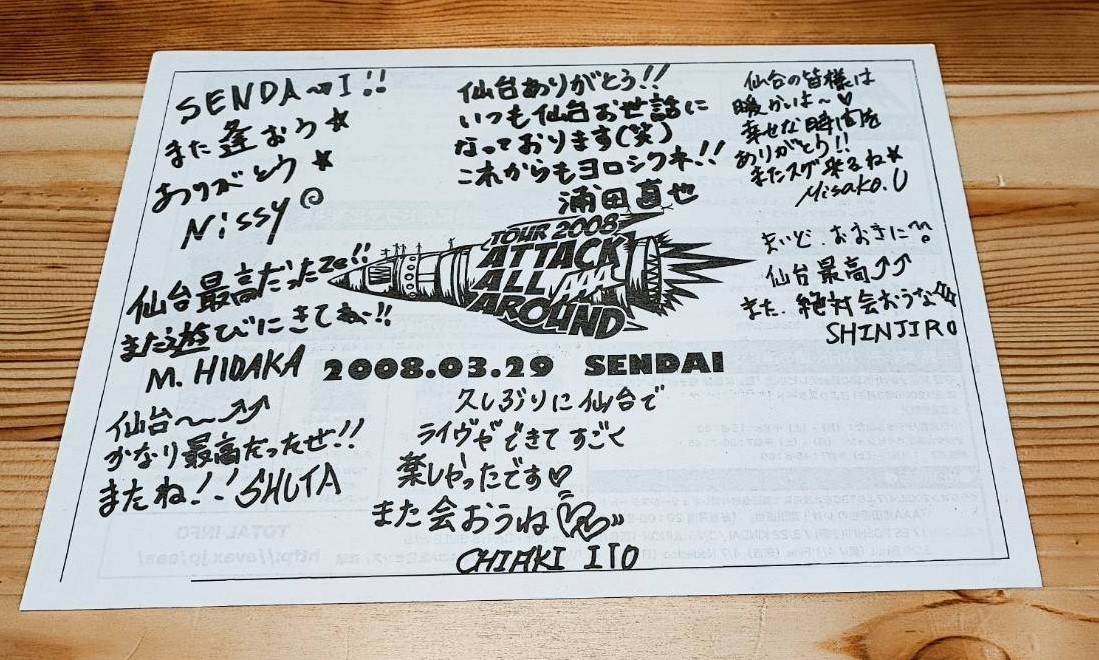 SENDA~I!!
また逢おう☆
ありがとう☆
Nissy
仙台ありがとう!!
いつも仙台お世話に
なっております(笑)
これからもヨロシクネ!!
浦田直也
仙台の皆様は
暖かいよ~♡
幸せな時間を
ありがとう!!
またスグ来るね☆
Misako.U
まいど.おおきに~。
仙台最高↗↗
また.絶対会おうな
SHINJIRO
仙台最高だったZe!!
また遊びにきてねー!!
M. HIDAKA
TOUR 2008
ATTACK
ALL AAA
AROUND
2008.03.29 SENDAI
仙台~↗↗
かなり最高だったぜ!!
またね!! SHUTA
久しぶりに仙台で
ライヴができてすごく
楽しかったです♡
また会おうね
CHIAKI ITO
TOTAL INFO